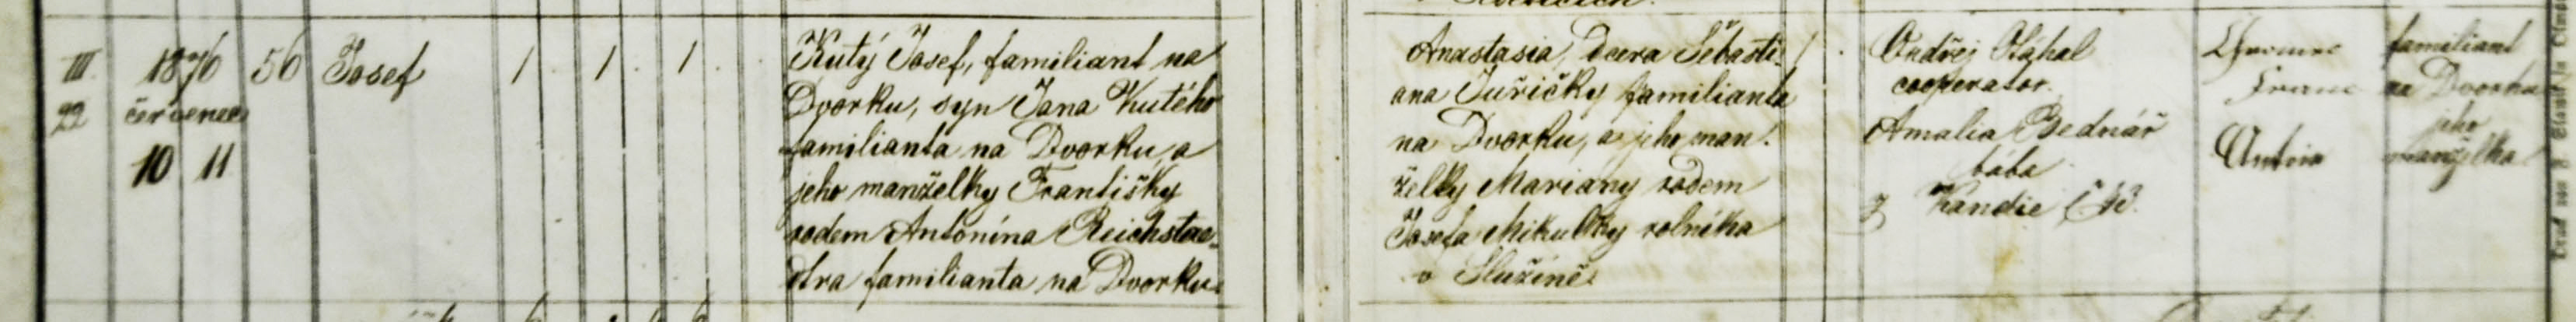 III 1876 56 Josef 1 1 1
22 červenec
10 11
Kutý Josef, familiant na
Dvorku, syn Jana Kutého
familianta na Dvorku a
jeho manželky Františky
rodem Antonína Reichstae-
dtra familianta na Dvorku.
Anastasia, dcera Šebasti- 1
ana Juřičky familianta
na Dvorku, a jeho man-
želky Mariány rodem
Josefa Mikulky rolníka
v Služíně.
Ondřej Otáhal
cooperator.
Amalia Bednář
bába
z Kandie
Franc
Antonia
familiant
na Dvorku
jeho
manželka